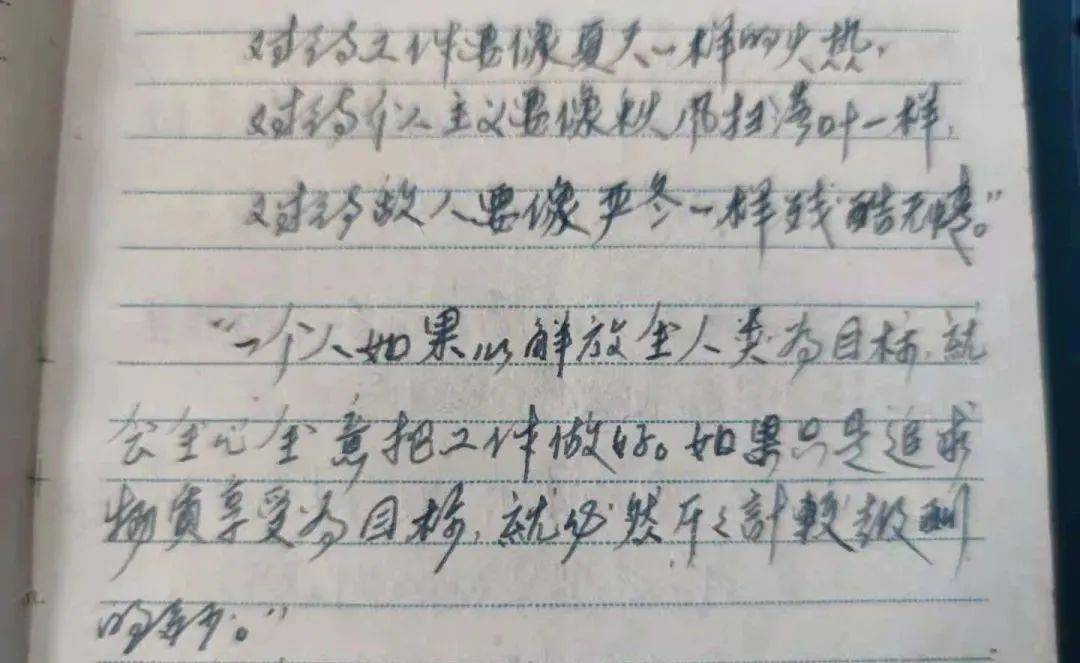 对待工作要像夏天一样的火热,
对待个人主义要像秋风扫落叶一样,
对待敌人要像严冬一样残酷无情。”
“一个人如果以解放全人类为目标,就
会全心全意把工作做好。如果只是追求
物质享受为目标,就必然斤斤計較級别
的